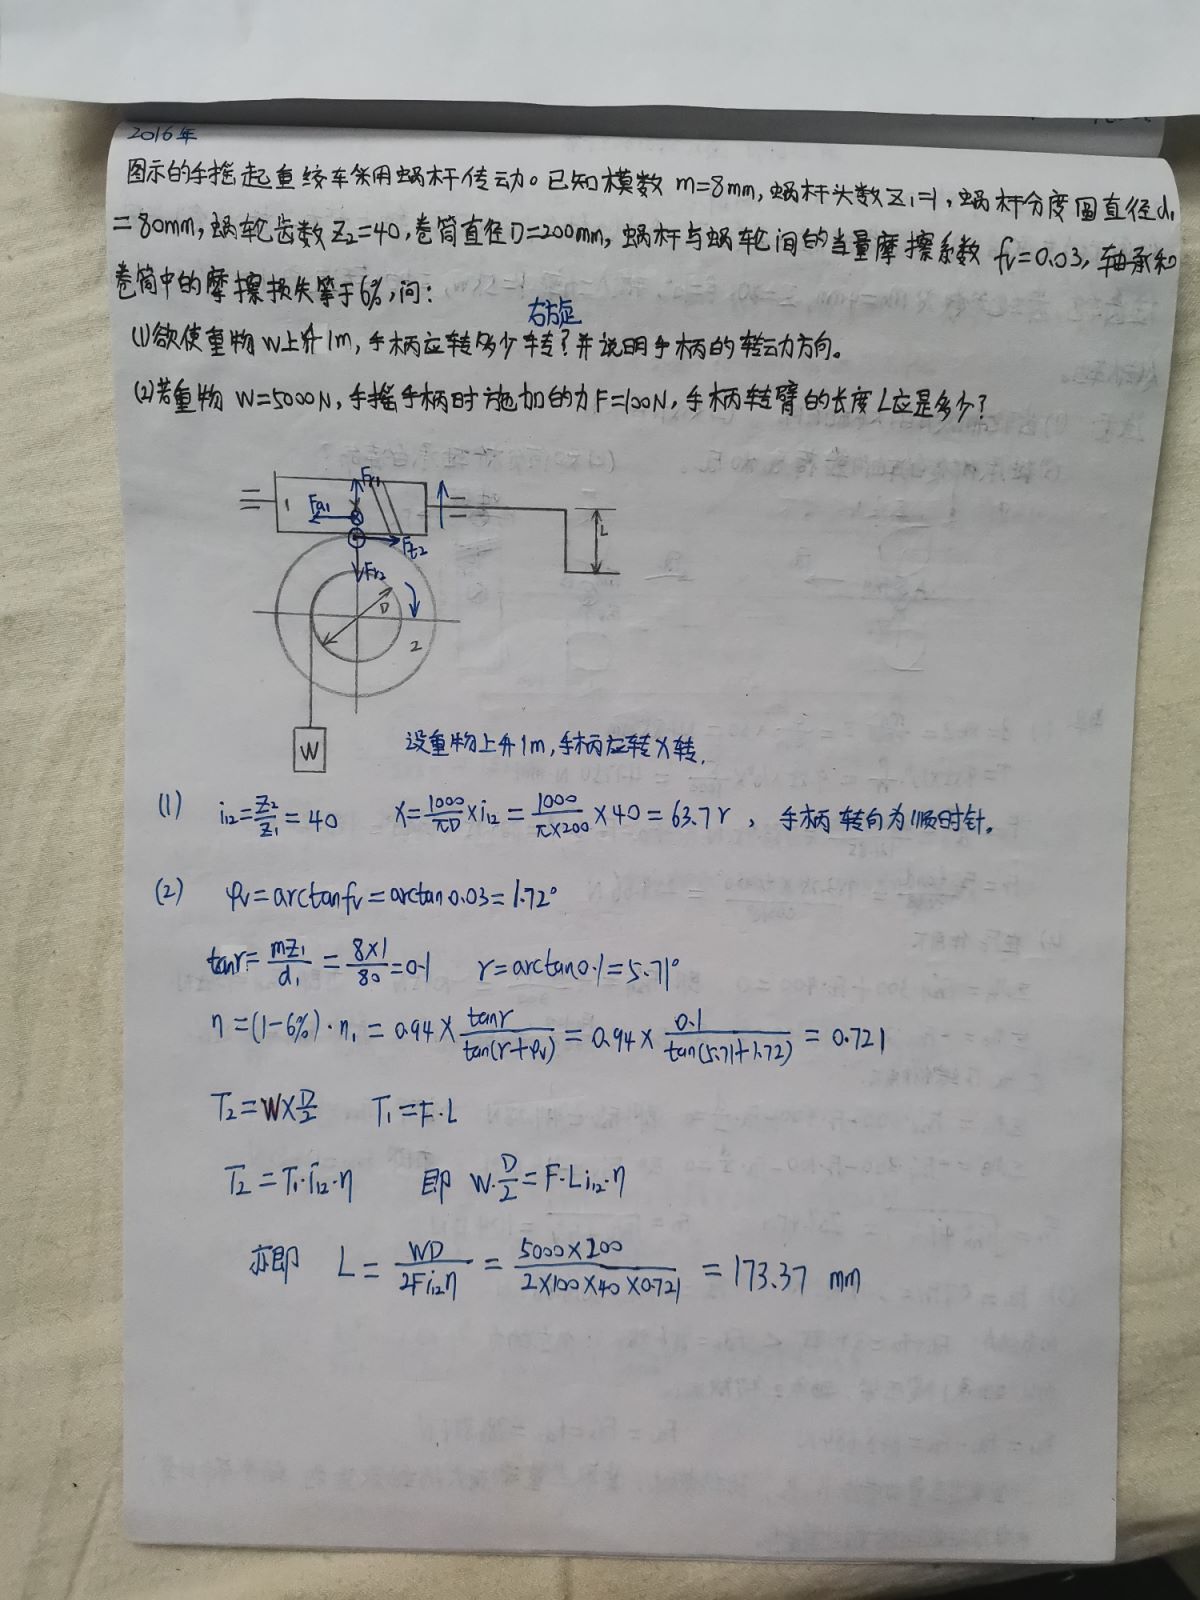 2016年
图示的手摇起重绞车采用蜗杆传动。已知模数 m=8mm,蜗杆头数Z₁=1,蜗杆分度圆直径d₁
=80mm,蜗轮齿数Z₂=40,卷筒直径D=200mm,蜗杆与蜗轮间的当量摩擦系数 fv=0.03,轴承和
卷筒中的摩擦损失等于6%,问:
右旋
(1)欲使重物W上升1m,手柄应转多少转?并说明手柄的转动方向。
(2)若重物 W=5000N,手摇手柄时施加的力F=100N,手柄转臂的长度L应是多少?
Fr1
1
Fa1
L
Ft2
Fr2
D
2
W
设重物上升1m,手柄应转X转.
(1) i₁₂=Z₂/Z₁=40 X=1000/πD×i₁₂=1000/π×200×40=63.7r, 手柄转向为顺时针。
(2) φv=arctanfv=arctan0.03=1.72°
tanr=mZ₁/d₁=8×1/80=0.1 r=arctan0.1=5.71°
η=(1-6%)·η₁=0.94×tanr/tan(r+φv)=0.94×0.1/tan(5.71+1.72)=0.721
T₂=W×D/2 T₁=F·L
T₂=T₁·i₁₂·η 即 W·D/2=F·Li₁₂·η
亦即 L=WD/2Fi₁₂η=5000×200/2×100×40×0.721=173.37 mm